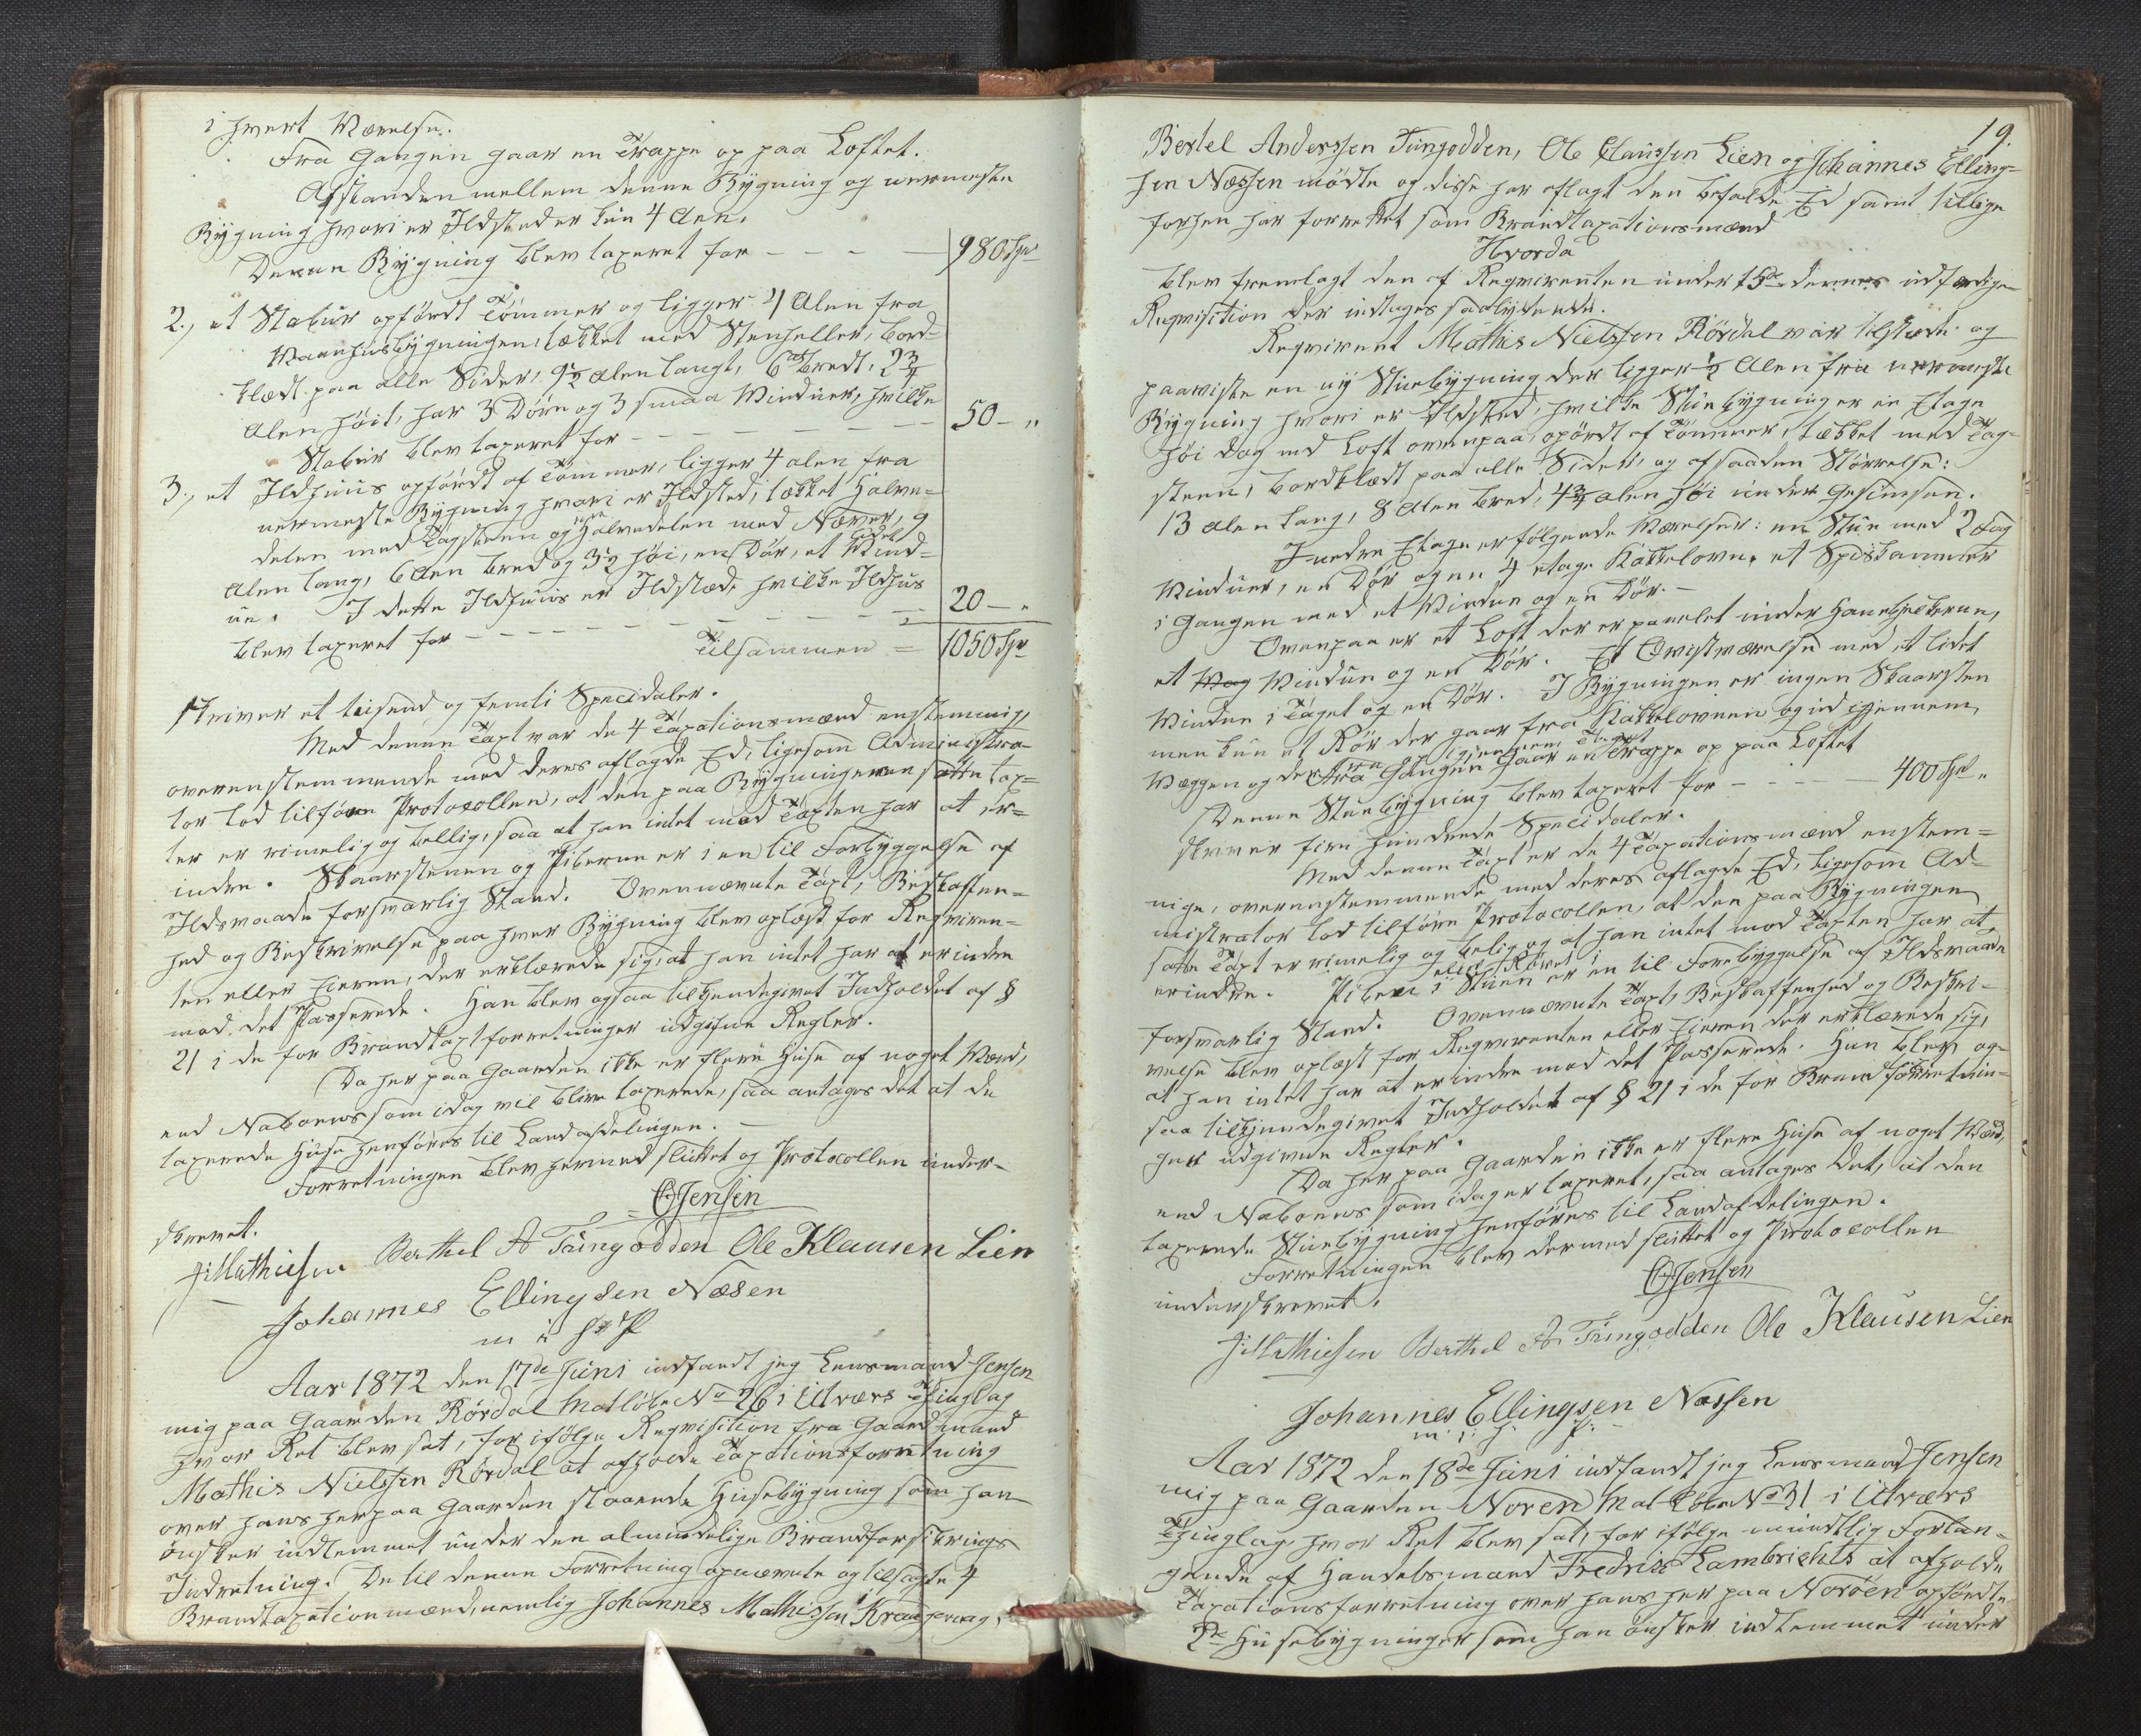 i hvert Værelse.
Fra Gangen gaar en Trappe op paa Loftet.
Afstanden mellem denne Bygning og nærmeste
Bygning hvori er Ildsteder kun 4 Alen.
Denne Bygning blev taxeret for - - - - 980 Spd
2., et Stabur opfördt Tömmer og ligger 4 Alen fra
Vaanhusbygningen, tækket med Stenheller, bord-
klædt paa alle Sider, 9½ Alen langt, 6 bredt, 2¾
Alen höit, har 3 Döre og 3 smaa Vinduer, hvilke
Stabur blev taxeret for - - - - - - 50 - "
3., et Ildhuus opfördt af Tömmer, ligger 4 alen fra
nermeste Bygning hvori er Ildsted, tækket Halve-
delen med Tagsteen og Halvedelen med Næver, 9
Alen lang, 6 Alen bred og 3½ höi, en Dör, et lidet Vind-
ue. I dette Ildhuus er Ildsted, hvilke Ildhus
blev taxeret for - - - - - - 20 - "
Tilsammen = 1050 Spd
skriver et tusend og femti Specidaler.
Med denne Taxt var de 4 Taxationsmænd enstemmig,
overenstemmende med deres aflagde Ed, ligesom Administra-
tor lod tilföre Protocollen, at den paa Bygningerne satte Tax-
ter er rimelig og billig, saa at han intet mod Taxten har at er-
indre. Skaarstenen og Piberne er i en til Forbyggelse af
Ildsvaade forsvarlig Stand. Ovennævnte Taxt, Beskaffen-
hed og Beskrivelse paa hver Bygning blev oplæst for Reqviren-
ten eller Eieren, der erklærede sig, at han intet har at erindre
mod det Passerede. Han blev ogsaa tilkjendegivet Indholdet af §
21 i de for Brandtaxtforretninger udgivne Regler.
Da her paa Gaarden ikke er flere Huse af noget Værd,
end Naboens som idag vil blive taxerede, saa antages det at de
taxerede Huse henföres til Landafdelingen.
Forretningen blev hermed sluttet og Protocollen under-
skrevet.
O Jensen
J: Mathiesen Berthel A Tungodden Ole Klausen Lien
Johannes Ellingsen Næsen
m i h P
Aar 1872 den 17de Juni indfandt jeg Lensmand Jensen
mig paa Gaarden Rördal Mat löbe No 26 i Utværs Thinglag
hvor Ret blev sat, for ifölge Reqvisition fra Gaardmand
Mathis Nielssen Rördal at afholde Taxationsforretning
over hans her paa Gaarden staaende Husebygning som han
önsker indlemmet under den almindelige Brandforsikrings
Indretning. De til denne Forretning opnævnte og tilsagte 4
Brandtaxationmænd, nemlig Johannes Mathissen
19.
Bertel Anderssen Tungodden, Ole Claussen Lien og Johannes Elling-
sen Næssen mödte og disse har aflagt den befalde Ed samt tillige
forhen har forrettet som Brandtaxationsmænd
Hvorda
blev fremlagt den af Reqvirenten under 15de dennes udfærdige
Reqvisition der indtages saalydende.
Reqvirent Mathis Nielssen Rördal var tilstede og
paaviste en ny Stuebygning der ligger ½ Alen fra nærmeste
Bygning hvori er Ildsted, hvilke Stuebygning er en Etage
höi dog med Loft ovenpaa, opördt af Tömmer, tækket med Tag-
steen, bordklædt paa alle Sider, og af saadan Störrelse:
13 Alen lang, 8 Alen bred, 4¾ alen höi under Gesimsen.
I nedre Etage er fölgende Værelser: en Stue med 2 Fag
Vinduer, en Dör og en 4 etage Kakkelovn. et Spiskammer
i Gangen med et Vindue og en Dör. -
Ovenpaa er et Loft der er panelet under Hanebjelkerne,
et Vindue og en Dör. Et Qvistværelse med et lidet
Vindue i Taget og en Dör. I Bygningen er ingen Skaarsten
men kun et Rör der gaar fra Kakkelovnen og ud igjennem
igjennem Taget
Væggen og der Fra Gangen gaar en Trappe op paa Loftet
Denne Stuebygning blev taxeret for - - - 400 Spd "
skriver fire hundrede Specidaler.
Med denne Taxt er de 4 Taxationsmænd enstem-
nige, overenstemmende med deres aflagde Ed, ligesom Ad-
ministrator lod tilföre Protocollen, at den paa Bygningen
satte Taxt er rimelig og belig og at han intet mod Taxten har at
erindre. Piben eller Röret i Stuen er i en til Forebyggelse af Ildsvaade
forsvarlig Stand. Ovennævnte Taxt, Beskaffenhed og Beskri-
velse blev oplæst for Reqvirenten eller Eieren der erklærede sig,
at han intet har at erindre mod det Passerede. Han blev og-
saa tilkjendegivet Indholdet af § 21 i de for Brandforretnin-
ger udgivne Regler.
Da her paa Gaarden ikke er flere Huse af noget Værd,
end Naboens som idag er taxeret, saa antages det, at den
taxerede Stuebygning henföres til Landafdelingen.
Forretningen blev dermed sluttet og Protocollen
underskrevet,
O Jensen
J: Mathiesen Berthel A Tungodden Ole Klausen Lien
Johannes Ellingsen Næssen
m. i: h. P:
Aar 1872 den 18de Juni indfandt jeg Lensmand Jensen
mig paa Gaarden Noren Mat-Löbe No 31 i Utværs
Thinglag hvor Ret blev sat, for ifölge mundtlig Forlan-
gende af Handelsmand Fredrik Lambrichts at afholde
Taxationsforretning over hans her paa Noröen opfördte
2de Husebygninger som han önsker indlemmet under